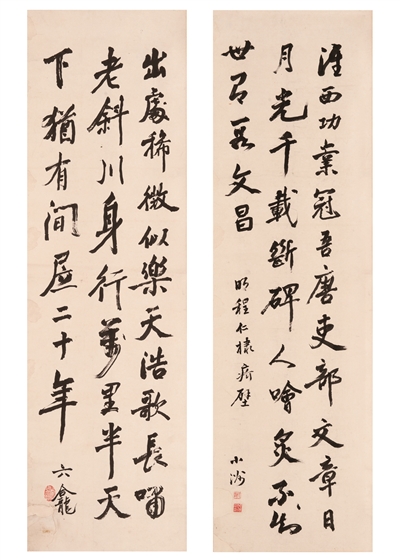 淮西功業冠吾唐吏部文章日
月光千載斷碑人噲炙不知
世有段文昌
明程仁棣疥壁
出處稀微似樂天浩歌長嘯
老斜川身行萬里半天
下猶有間居二十年
六龕